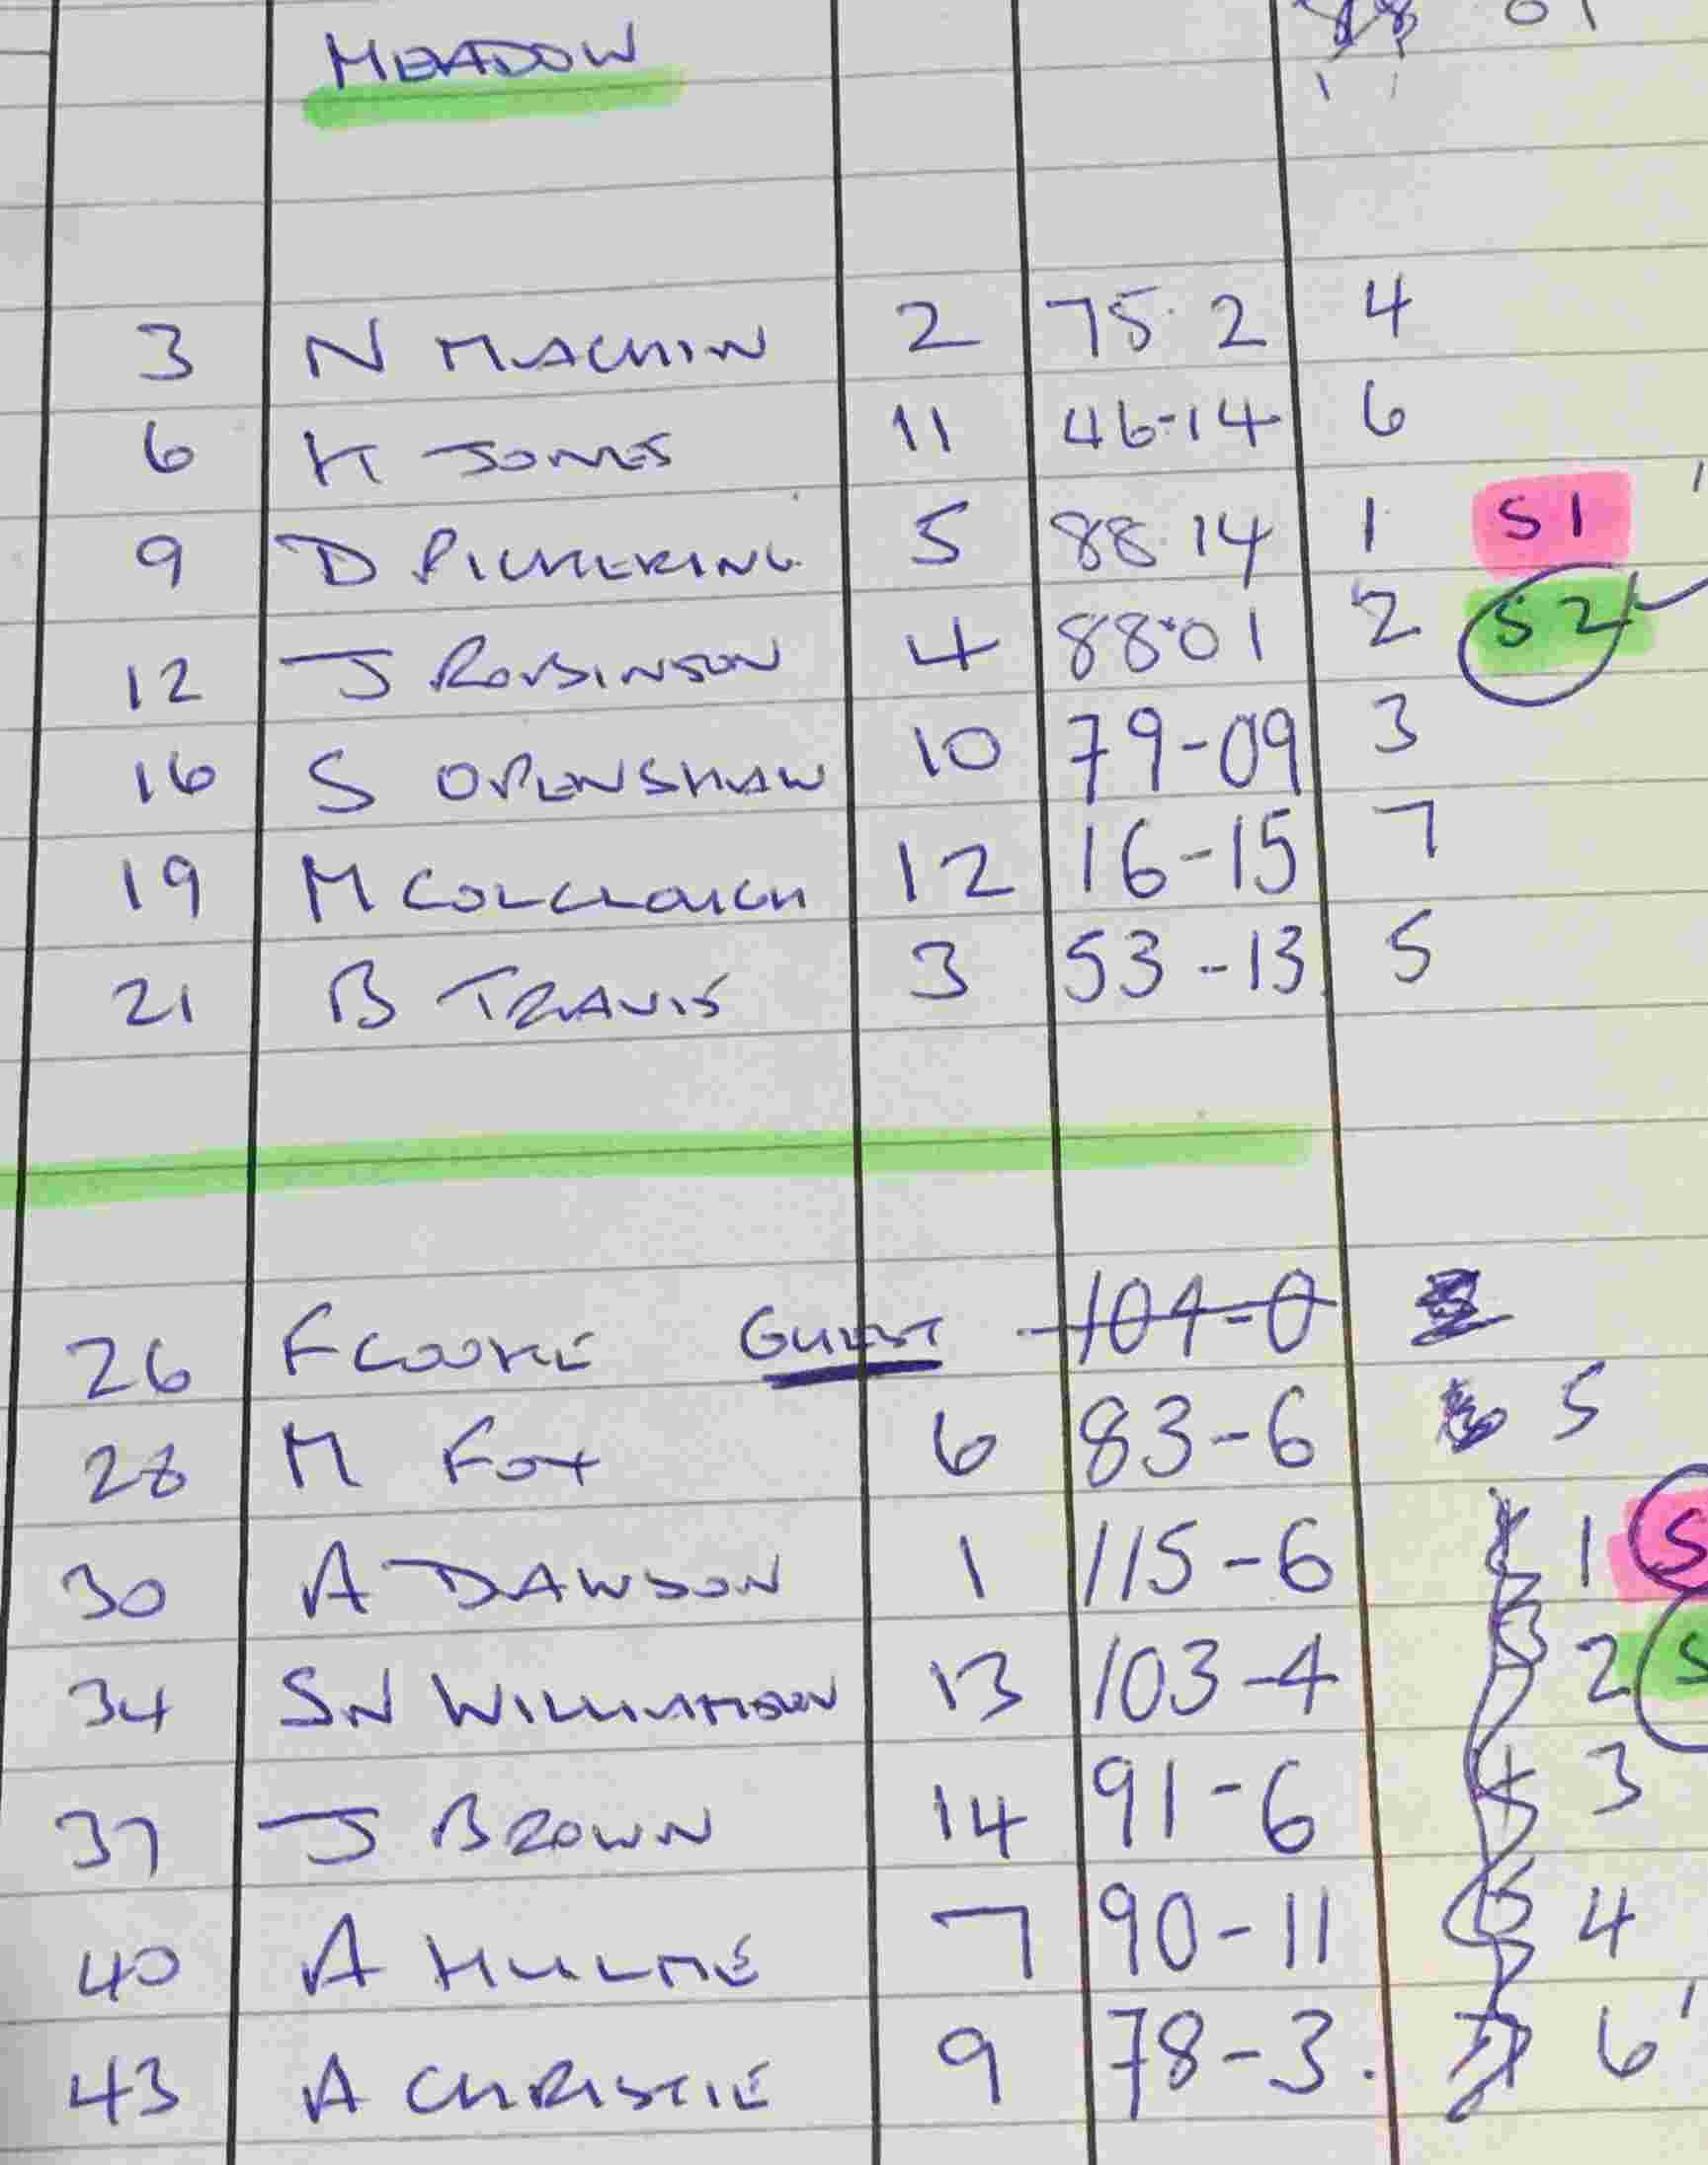 MEADOW
3 N MACHIN 2 75.2 4
6 K JONES 11 46-14 6
9 D PICKERING 5 88.14 1 S1
12 J ROBINSON 4 88.01 2 S2
16 S OPENSHAW 10 79-09 3
19 M COLCLOUGH 12 16-15 7
21 B TRAVIS 3 53-13 5
26 F COOKE GUEST 104-0
28 M FOX 6 83-6 5
30 A DAWSON 1 115-6 1 S
34 SN WILLIAMSON 13 103-4 2 S
37 J BROWN 14 91-6 3
40 A HULME 7 90-11 4
43 A CHRISTIE 9 78-3. 6